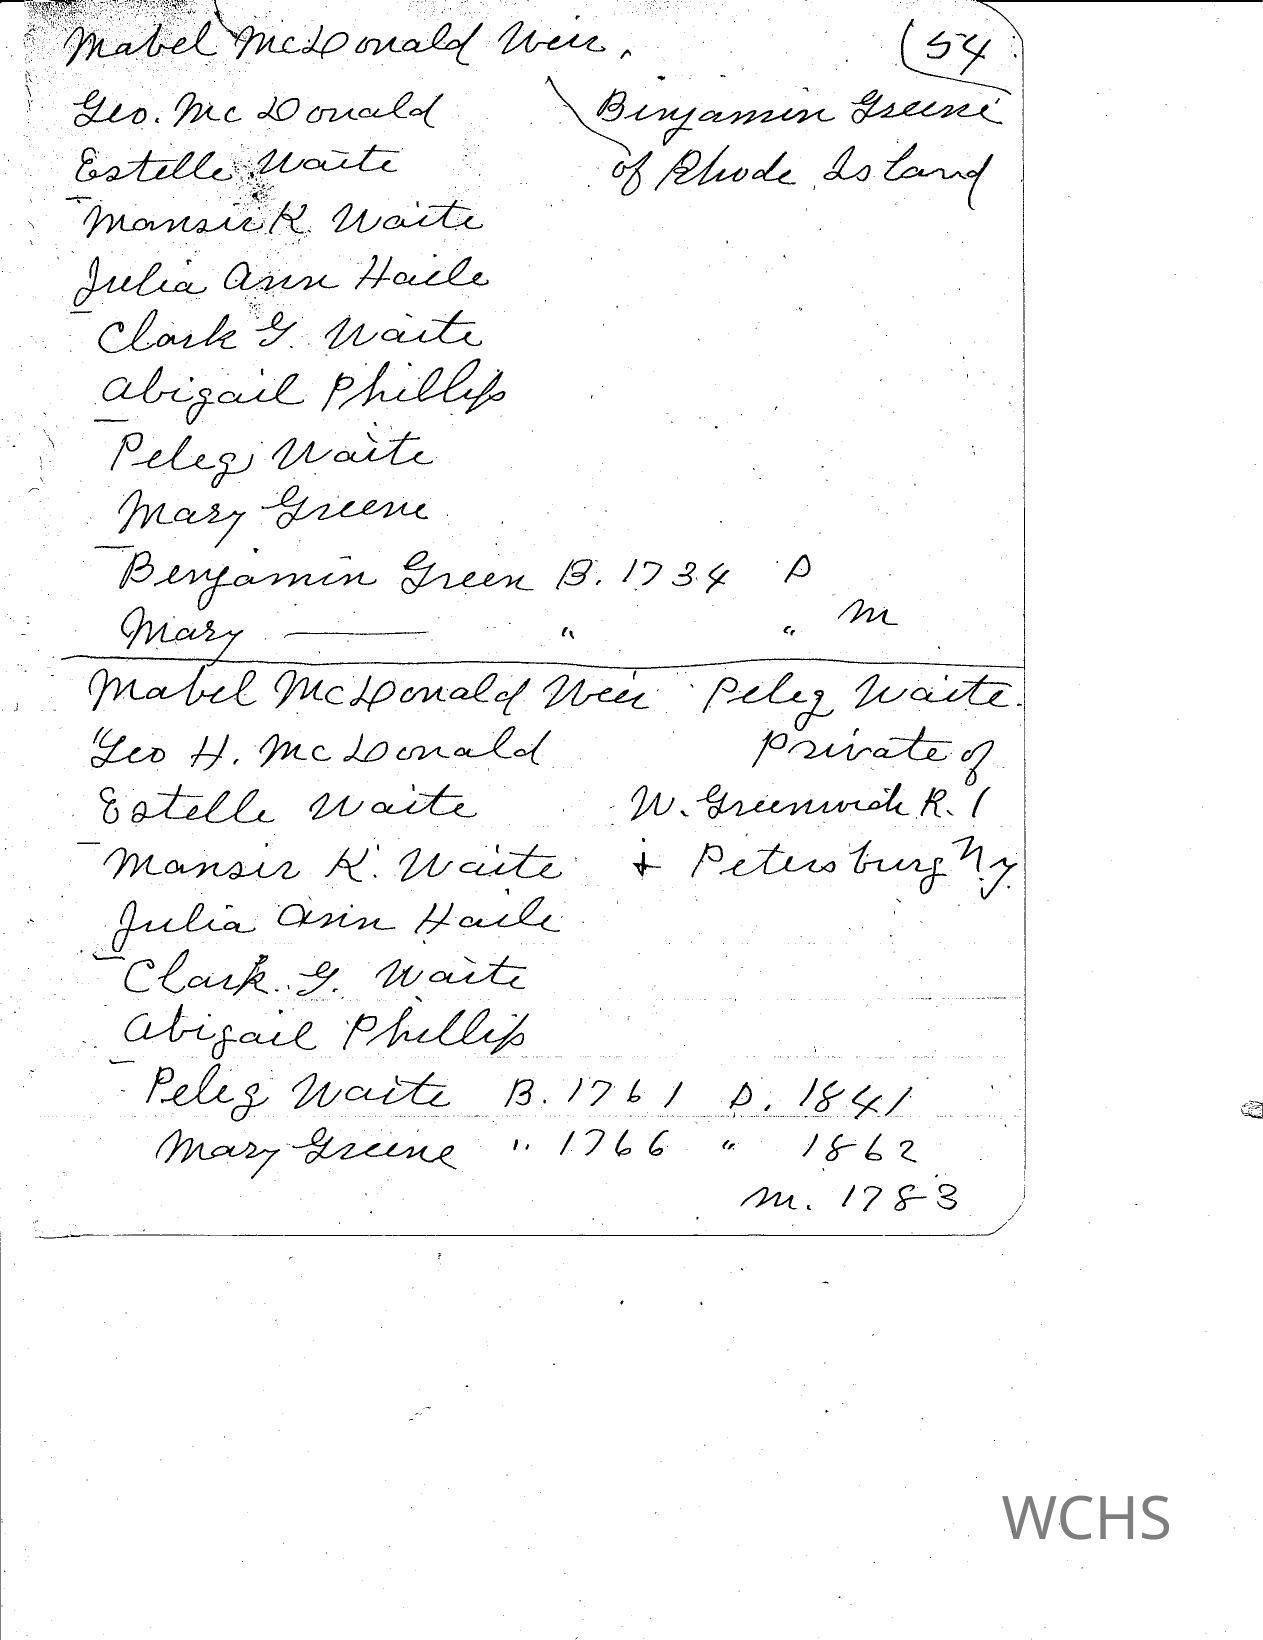 Mabel McDonald Weir. 54
Geo. McDonald Benjamin Greene
Estelle Waite of Rhode Island
Mansir K. Waite
Julia Ann Haile
Clark G. Waite
Abigail Phillips
Peleg Waite
Mary Greene
Benjamin Green B. 1734 D
Mary —— " " M
Mabel McDonald Weir Peleg Waite.
Geo H. McDonald Private of
Estelle Waite W. Greenwich R. I
Mansir K. Waite + Petersburg N.Y.
Julia Ann Haile
Clark. G. Waite
Abigail Phillips
Peleg Waite B. 1761 D. 1841
Mary Greene " 1766 " 1862
M. 1783
WCHS